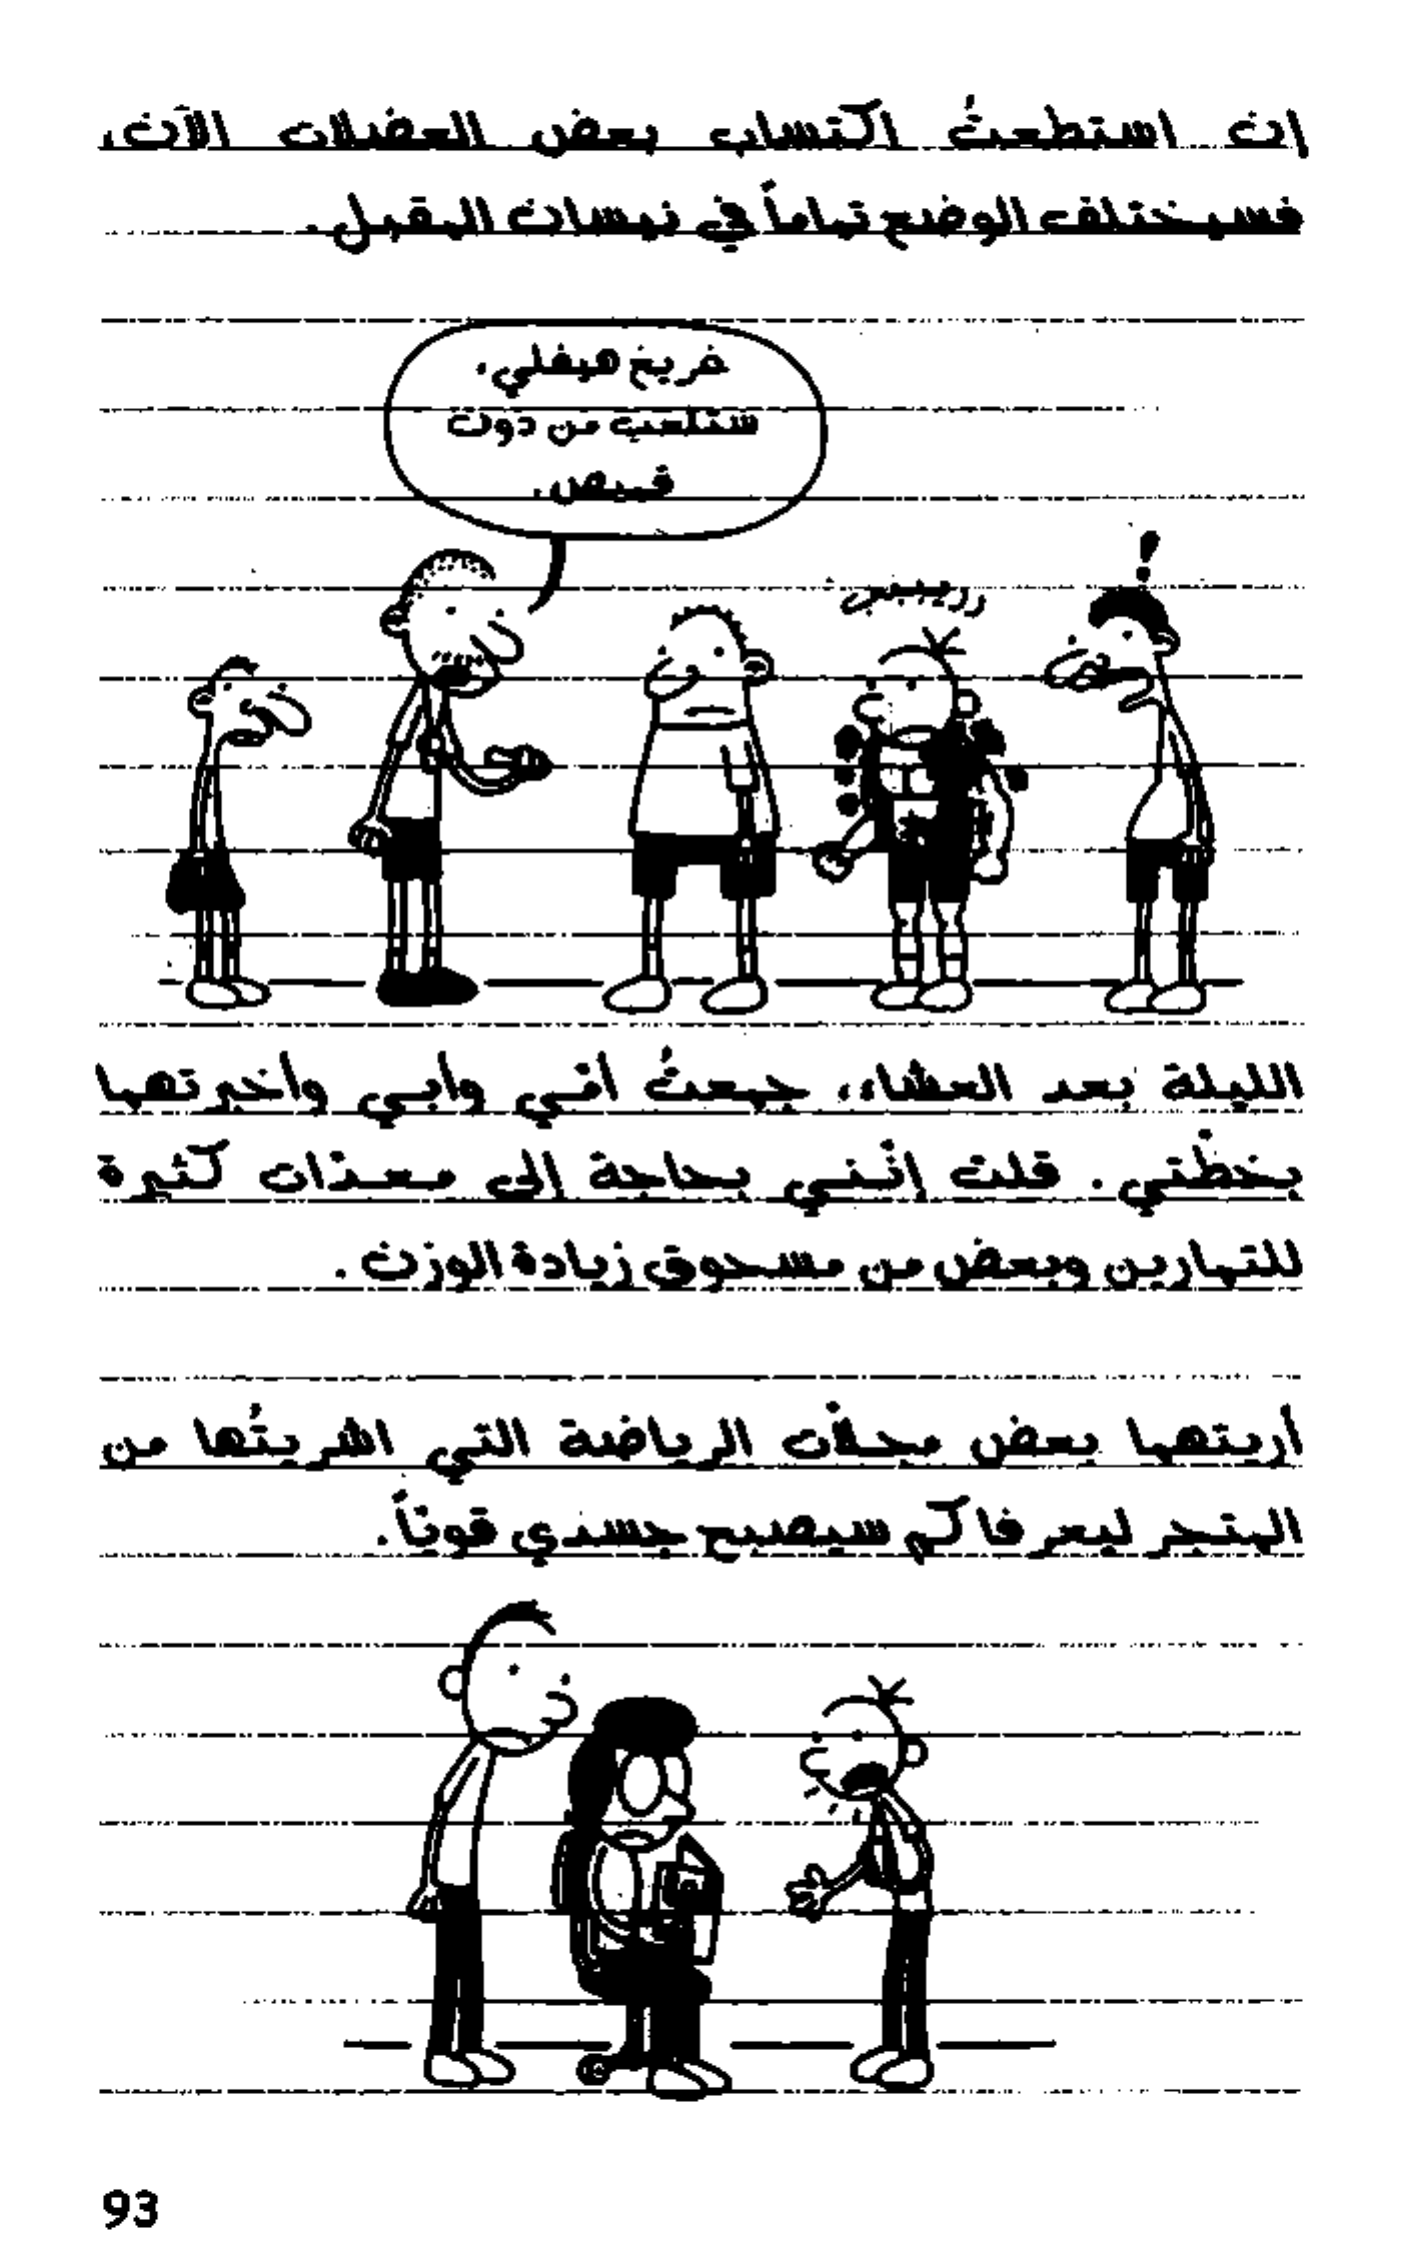 إن استطعتُ اكتساب بعض العضلات الآن،
فسيختلف الوضع تماماً في نيسان المقبل.
غريغ هيفلي،
ستلعب من دون
قميص.
!
الليلة بعد العشاء، جمعتُ أمّي وأبي وأخبرتهما
بخطّتي. قلت إنّني بحاجة إلى معدّات كثيرة
للتمارين وبعض من مسحوق زيادة الوزن.
أريتهما بعض مجلّات الرياضة التي اشريتُها من
المتجر ليعرفا كم سيصبح جسدي قويّاً.
93